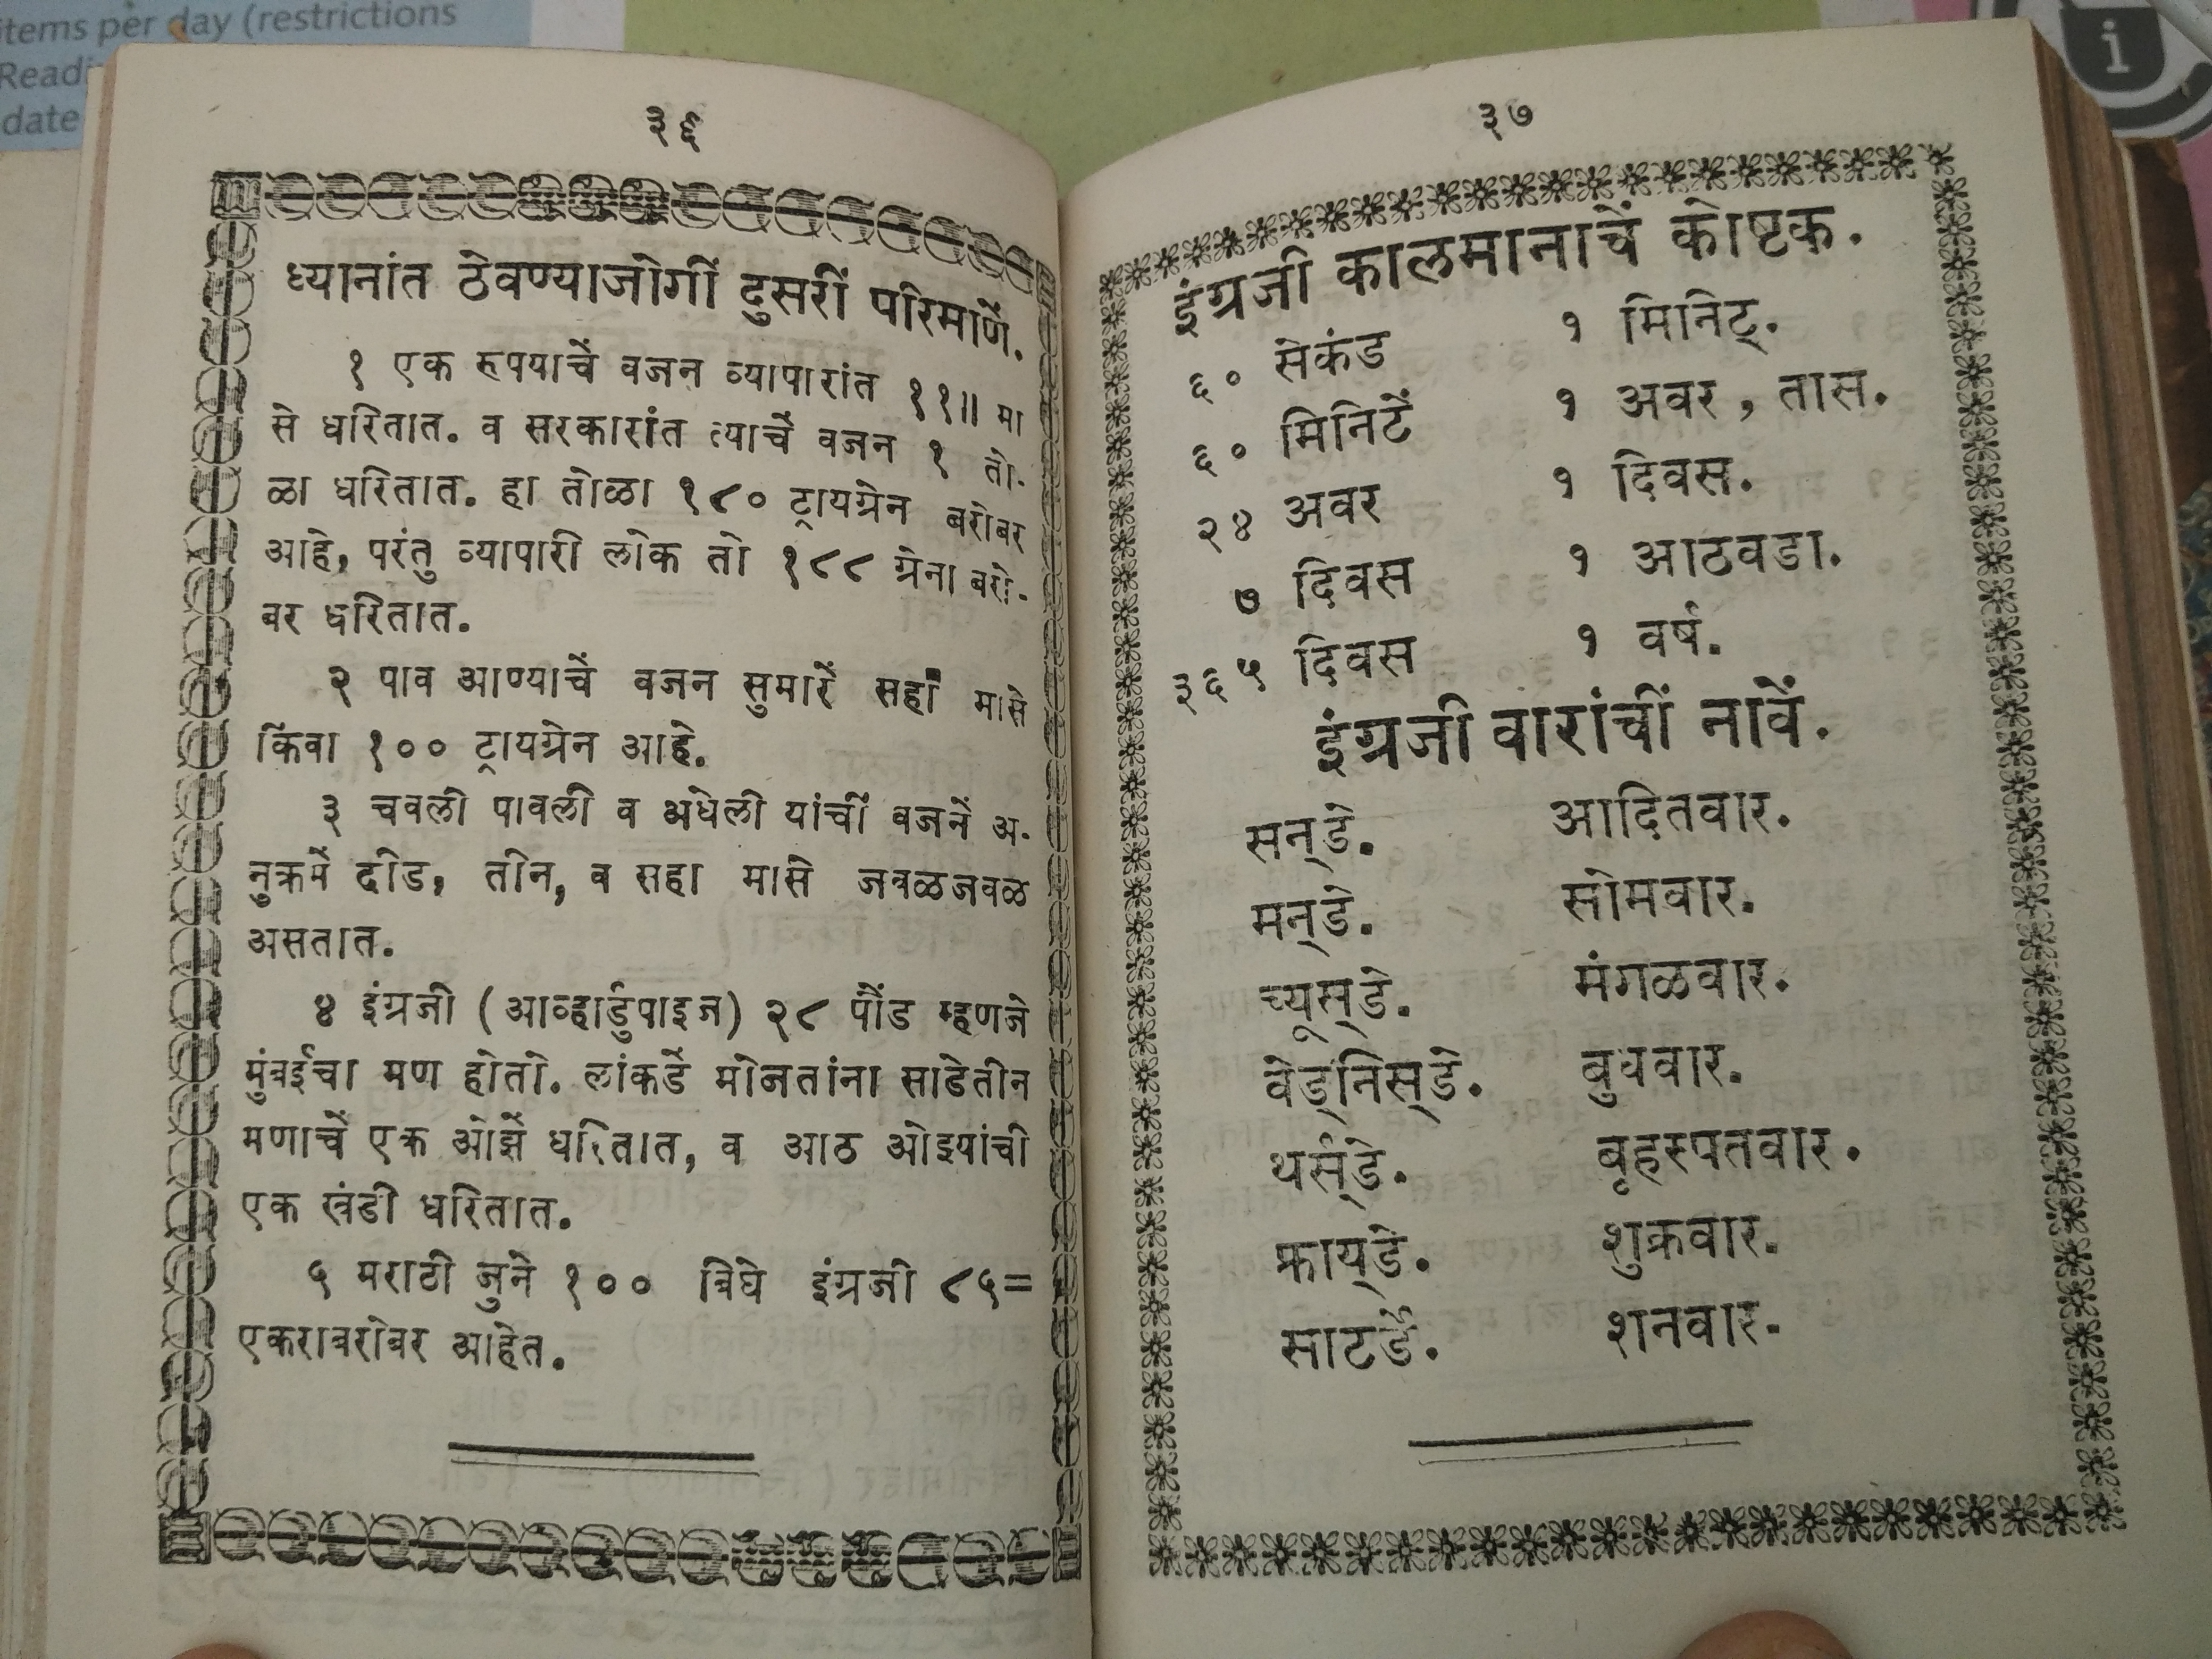 items per day (restrictions
date
३६
ध्यानांत ठेवण्याजोगीं दुसरीं परिमाणें.
१ एक रुपयाचें वजन व्यापारांत ११॥ मा
से धरितात. व सरकारांत त्याचें वजन १ तो-
ळा धरितात. हा तोळा १८० ट्रायग्रेन बरोबर
आहे, परंतु व्यापारी लोक तो १८८ ग्रेना बरो-
बर धरितात.
२ पाव आण्याचें वजन सुमारें सहा मासे
किंवा १०० ट्रायग्रेन आहे.
३ चवली पावली व अधेली यांचीं वजनें अ-
नुक्रमें दीड, तीन, व सहा मासे जवळजवळ
असतात.
४ इंग्रजी (आव्हार्डुपाइज) २८ पौंड म्हणजे
मुंबईचा मण होतो. लांकडें मोजतांना साडेतीन
मणाचें एक ओझें धरितात, व आठ ओझ्यांची
एक खंडी धरितात.
५ मराठी जुने १०० बिघे इंग्रजी ८५=
एकराबरोबर आहेत.
३७
इंग्रजी कालमानाचें कोष्टक.
६० सेकंड १ मिनिट्.
६० मिनिटें १ अवर, तास.
२४ अवर १ दिवस.
७ दिवस १ आठवडा.
३६५ दिवस १ वर्ष.
इंग्रजी वारांचीं नावें.
सन्‌डे. आदितवार.
मन्‌डे. सोमवार.
च्यूस्‌डे. मंगळवार.
वेड्‌निस्‌डे. बुधवार.
थर्स्‌डे. बृहस्पतवार.
फ्राय्‌डे. शुक्रवार.
साटर्डे. शनवार.